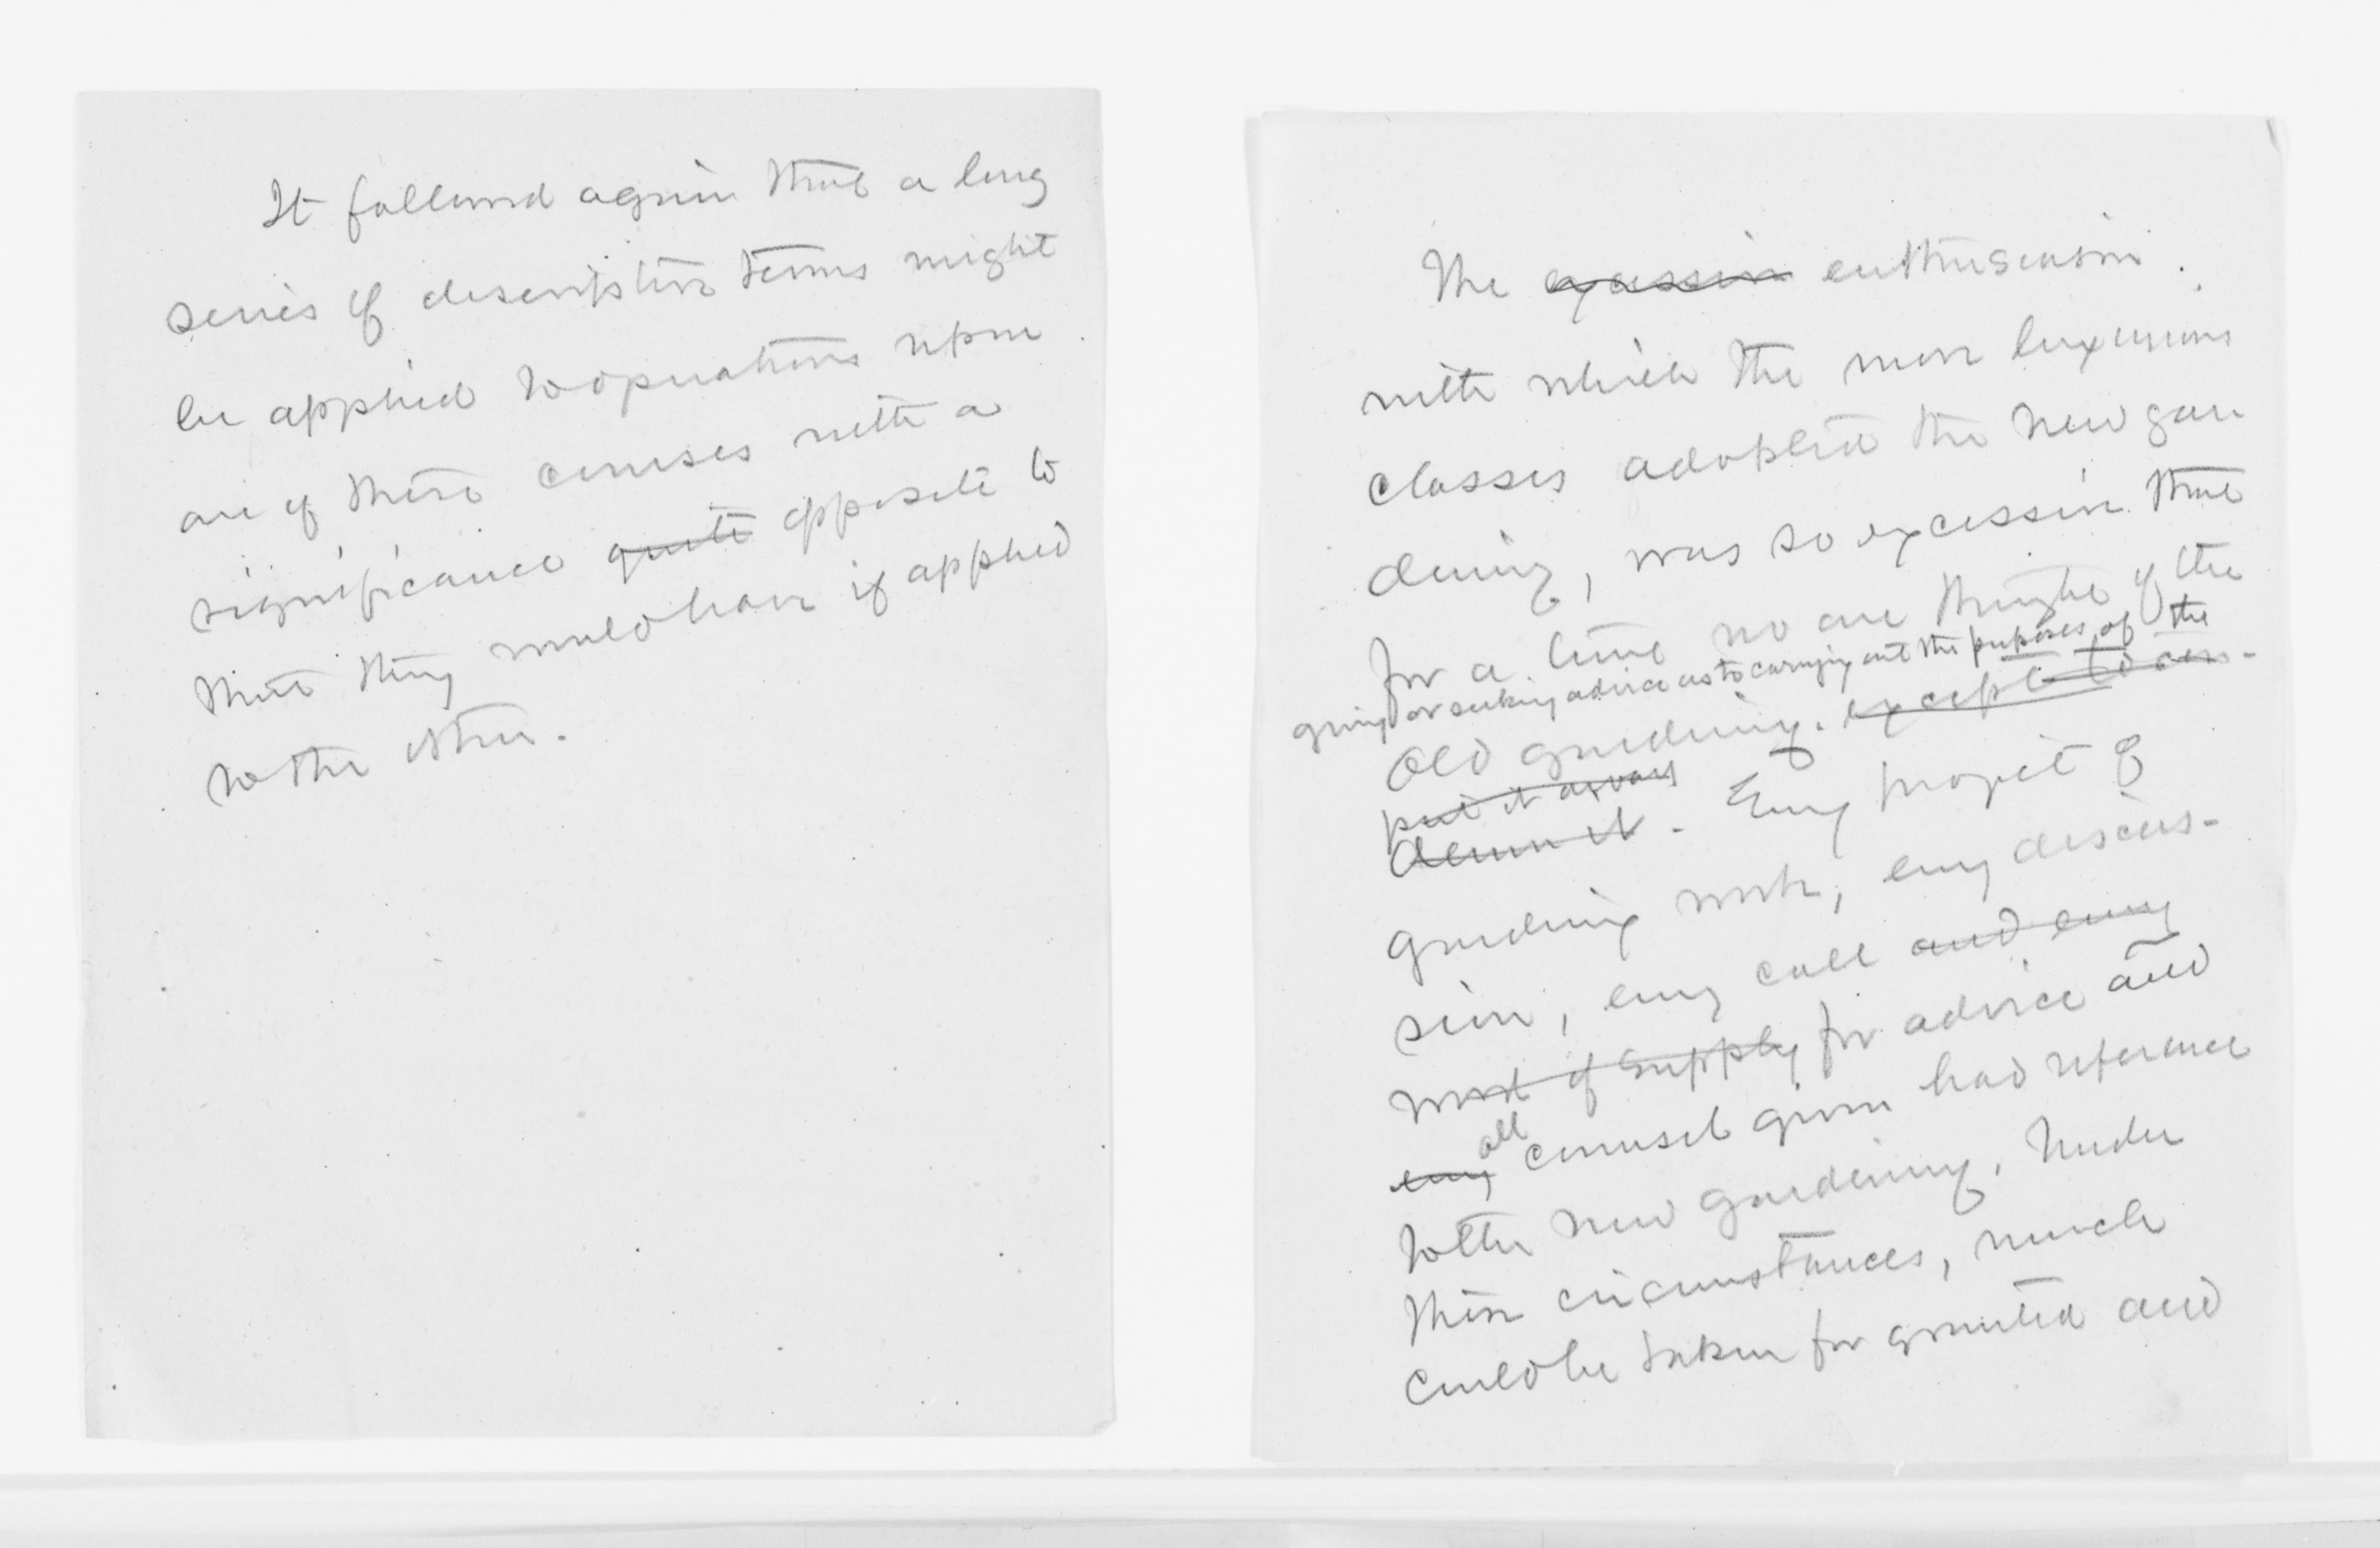 It followed again that a long
series of descriptive terms might
be applied to operations upon
one of these courses with a
significance quite opposite to
that they would have if applied
to the other.
The excessive enthusiasm
with which the more luxurious
classes adopted the new gar
dening, was so excessive that
for a time no one thought of the
giving or seeking advice as to carrying out the purposes of the
old gardening. except to con-
put it away
demn it. Every project of
gardening work, every discus-
sion, every call and every
word of supply for advice and
every all counsel given had reference
to the new gardening. Under
these circumstances, much
could be taken for granted and